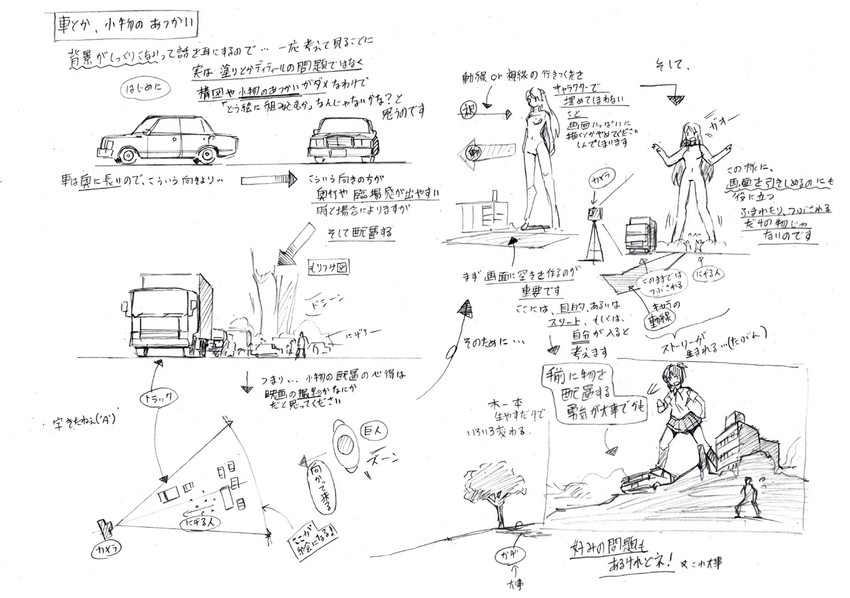 車とか、小物のあつかい
背景がしっくりこないって話を耳にするので… 一応考えて見ることに
実は塗りとかディティールの問題ではなく
構図や小物のあつかいがダメなわけで
「どう絵に組み込むか」なんじゃないかな?と
思うのです
はじめに
車は奥に長いので、こういう向きより…
こういう向きの方が
奥行や臨場感が出やすい
時と場合によりますが
そして配置する
ドドーン
にげろー
トラック
つまり… 小物の配置の心得は
映画の撮影かなにか
だと思ってください
字きたねぇ('A')
巨人
ズーン
向かって来る
にげる人
カメラ
ここが
絵になる!
動線 or 視線の行きつく先を
キャラクターで
埋めてしまわない
こと
画面いっぱいに
描くとかやるでだいたい
しんでしまいます
視
動
まず画面に空きを作るのが
重要です
ここには、目的、あるいは
スタート、もしくは、
自分が入ると
考えます
そのために…
そして、
ガオー
カメラ
この様に、
画面を引きしめるのにも
役に立つ
ふまれたり、つぶされる
だけの物じゃ
ないのです
このままでは
つぶされる
にげる人
キャラの
動線
ストーリーが
生まれる…(たぶん)
手前に物を
配置する
勇気が大事でかも
木一本
生やすだけで
いろいろ変わる
カゲ
大事
好みの問題も
あるけれどネ!